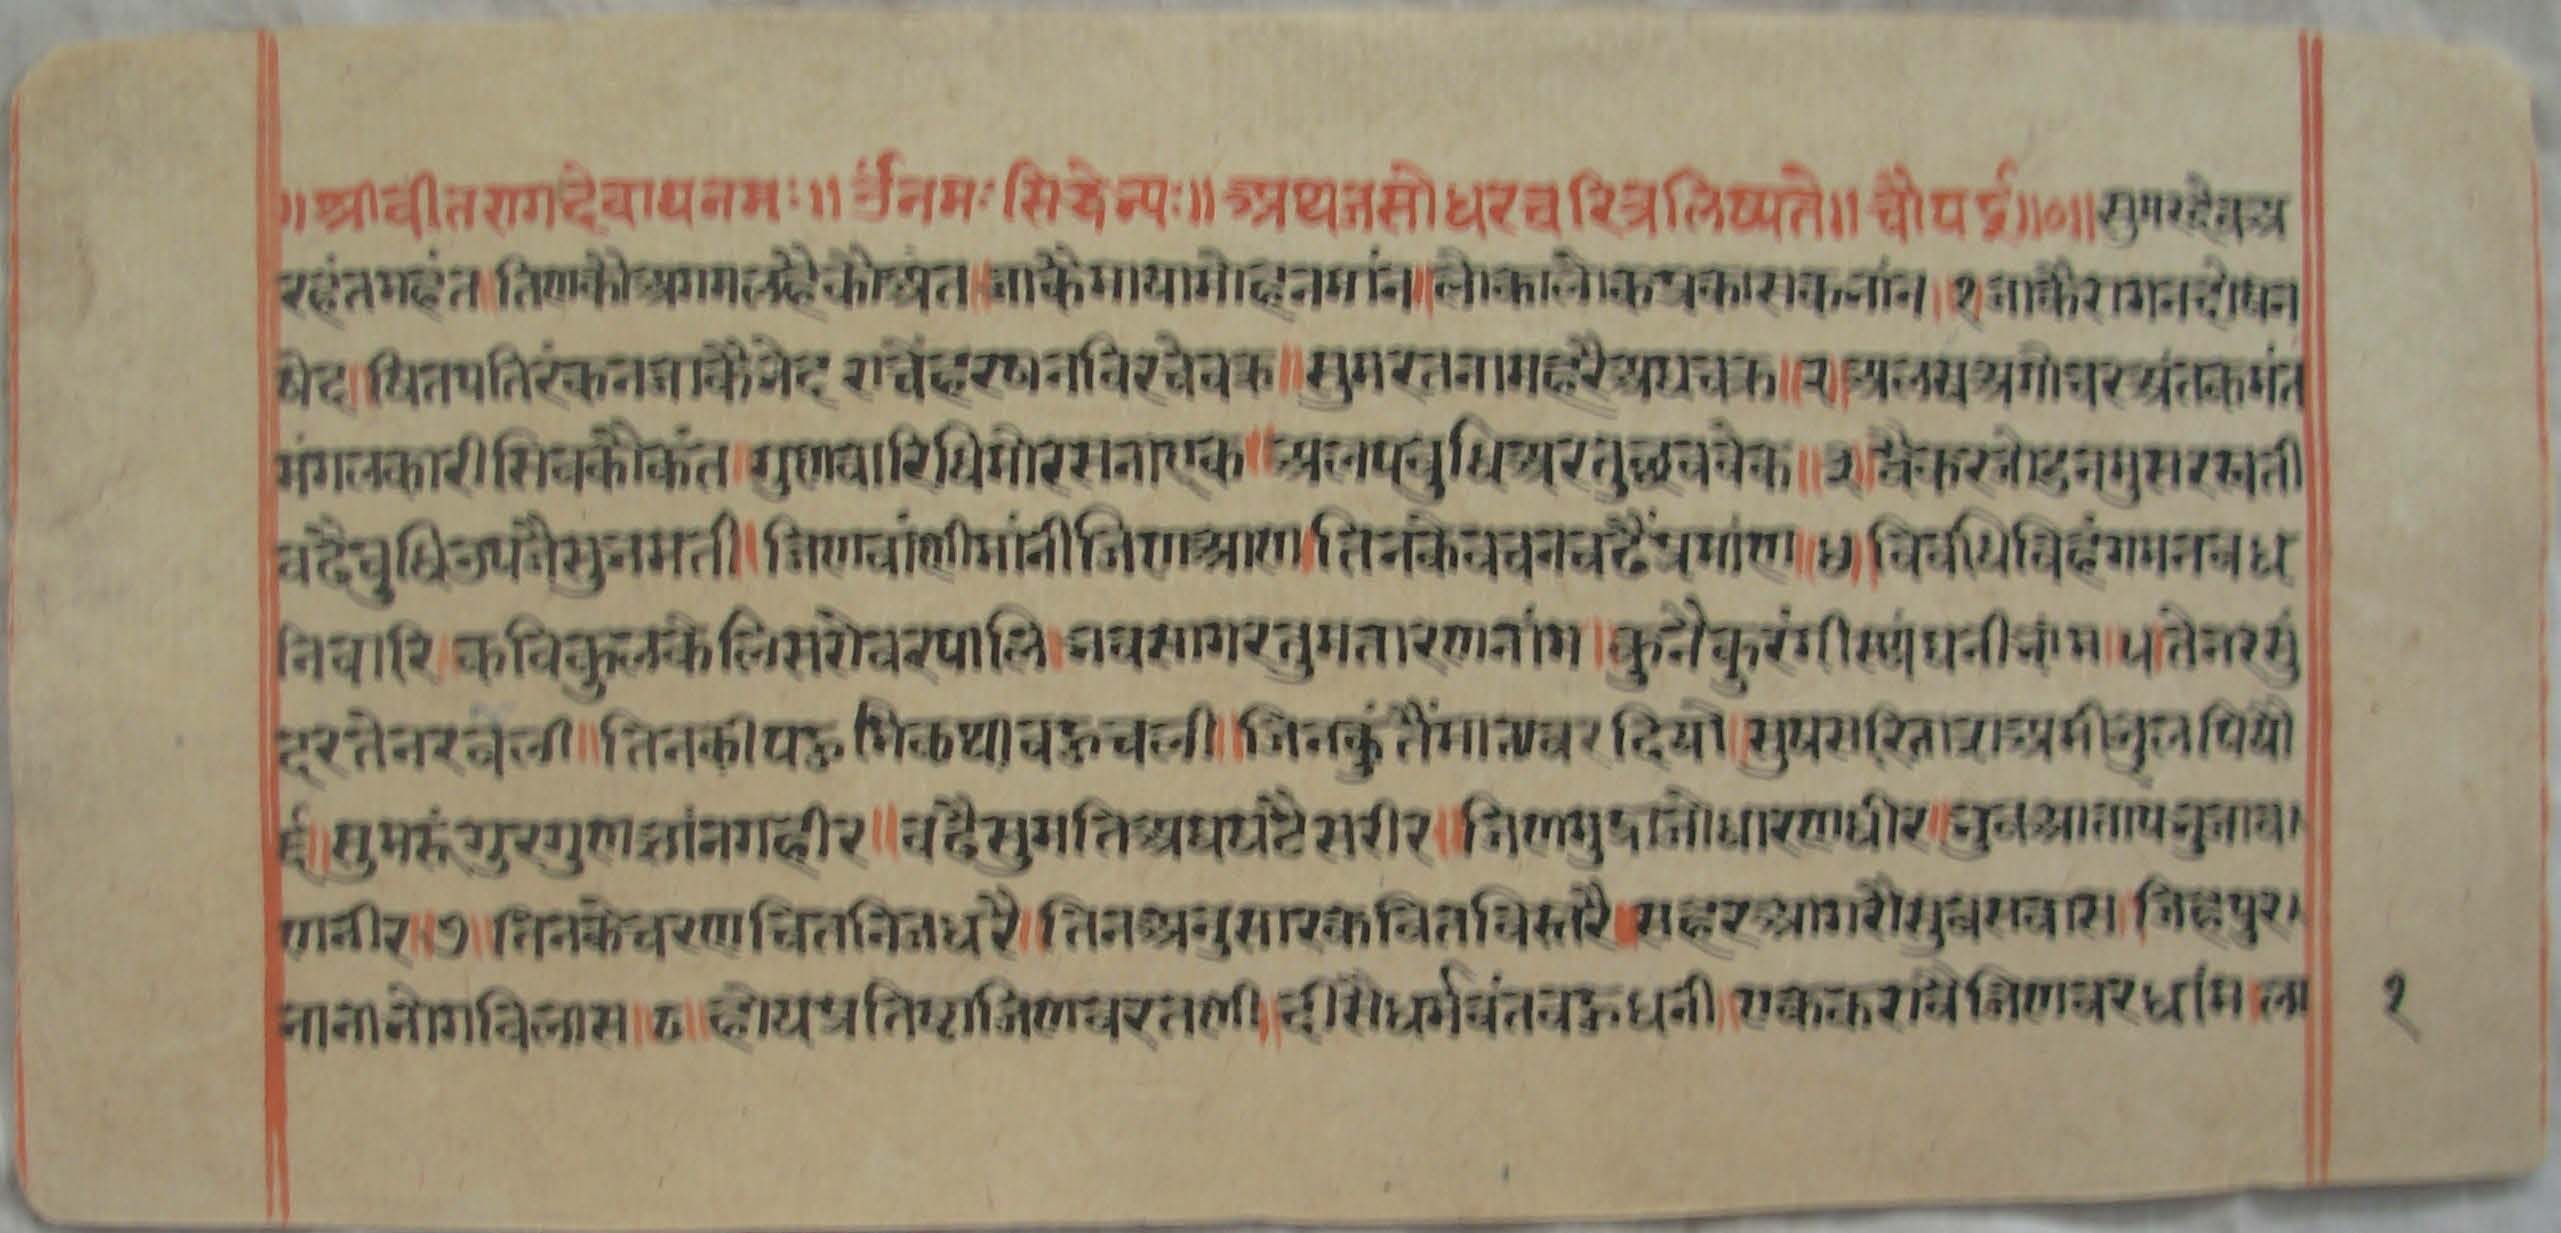 ॥श्रीवीतरागदेवायनमः॥ ॐनमः सिद्धेभ्यः॥ अथजसोधरचरित्रलिष्यते॥ चौपई॥०॥ सुमरदेवअ
रहंतमहंत॥ तिणकौअगमलहैकोअंत॥ जाकैमायामोहनमांन॥ लोकालोकप्रकासकजांन॥ १ जाकैरागनदोषन
षेद॥ षितपतिरंकनजाकैभेद राचेंहरणनविरचेवक्र॥ सुमरतनामहरैअघचक्र॥ २॥ अलषअगोचरअंतकमंत
मंगलकारीसिवकौकंत॥ गुणवारिधिमोरसनाएक॥ अलपबुधिअरतुछववेक॥ ३॥ द्वैकरजोडनमुसरस्वती
बढैबुधिउपजैसुभमती॥ जिणवांणीमांनीजिणआण॥ तिनकेवचनचढैंप्रमांण॥ ४॥ विवधिविहंगमनबध
निवारि॥ कविकुलकेलिसरोवरपालि॥ भवसागरतुमतारणनांम॥ कुनैकुरंगी नांम॥ ५॥ तेनरसुं
दरतेनरबली॥ तिनकीपहुमिकथाबहुचली॥ जिनकुंतैंमातवरदियौ॥ पियौ
ई॥ सुमरुंगुरगुणग्यांनगहीर॥ बढैसुमतिअघघटैसरीर॥ जिणमुद्राजोधारणधीर॥
णनीर॥ ७॥ तिनकेचरणचितनिजधरै॥ तिनअनुसारकवितविस्तरै॥ सहरआगरौसुबसवास॥ जिहपुर
नानाभोगविलास॥ ८॥ होयप्रतिष्टाजिणवरतणी॥ दीसैधर्मवंतबहुधनी॥ एककरावैजिणवरधांम॥ ला
१